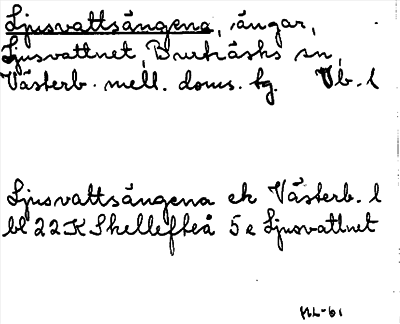 Ljusvattsängena, ängar,
Ljusvattnet, Burträsks sn,
Västerb. mell. doms. tg. Vb. l
Ljusvattsängena ek Västerb. l
bl 22K Skellefteå 5e Ljusvattnet
HL-61